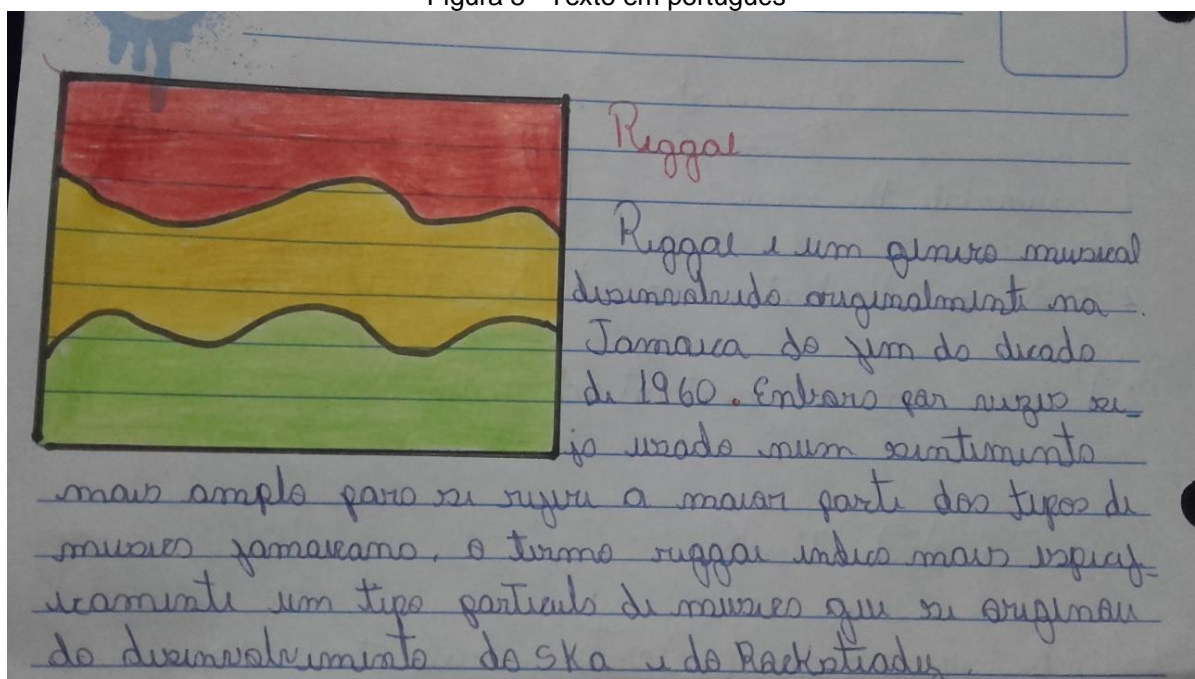 Figura 3 - Texto em português
Reggae
Reggae e um genero musical
desenvolvido originalmente na
Jamaica do fim do decado
de 1960. Embora por vezes se-
ja usado num sentimento
mais amplo para se referi a maior parte dos tipos de
musica jamaicano, o termo reggae indica mais especif-
icamente um tipo particulo de musica que se originou
do desenvolvimento do ska e do Rockstiady.